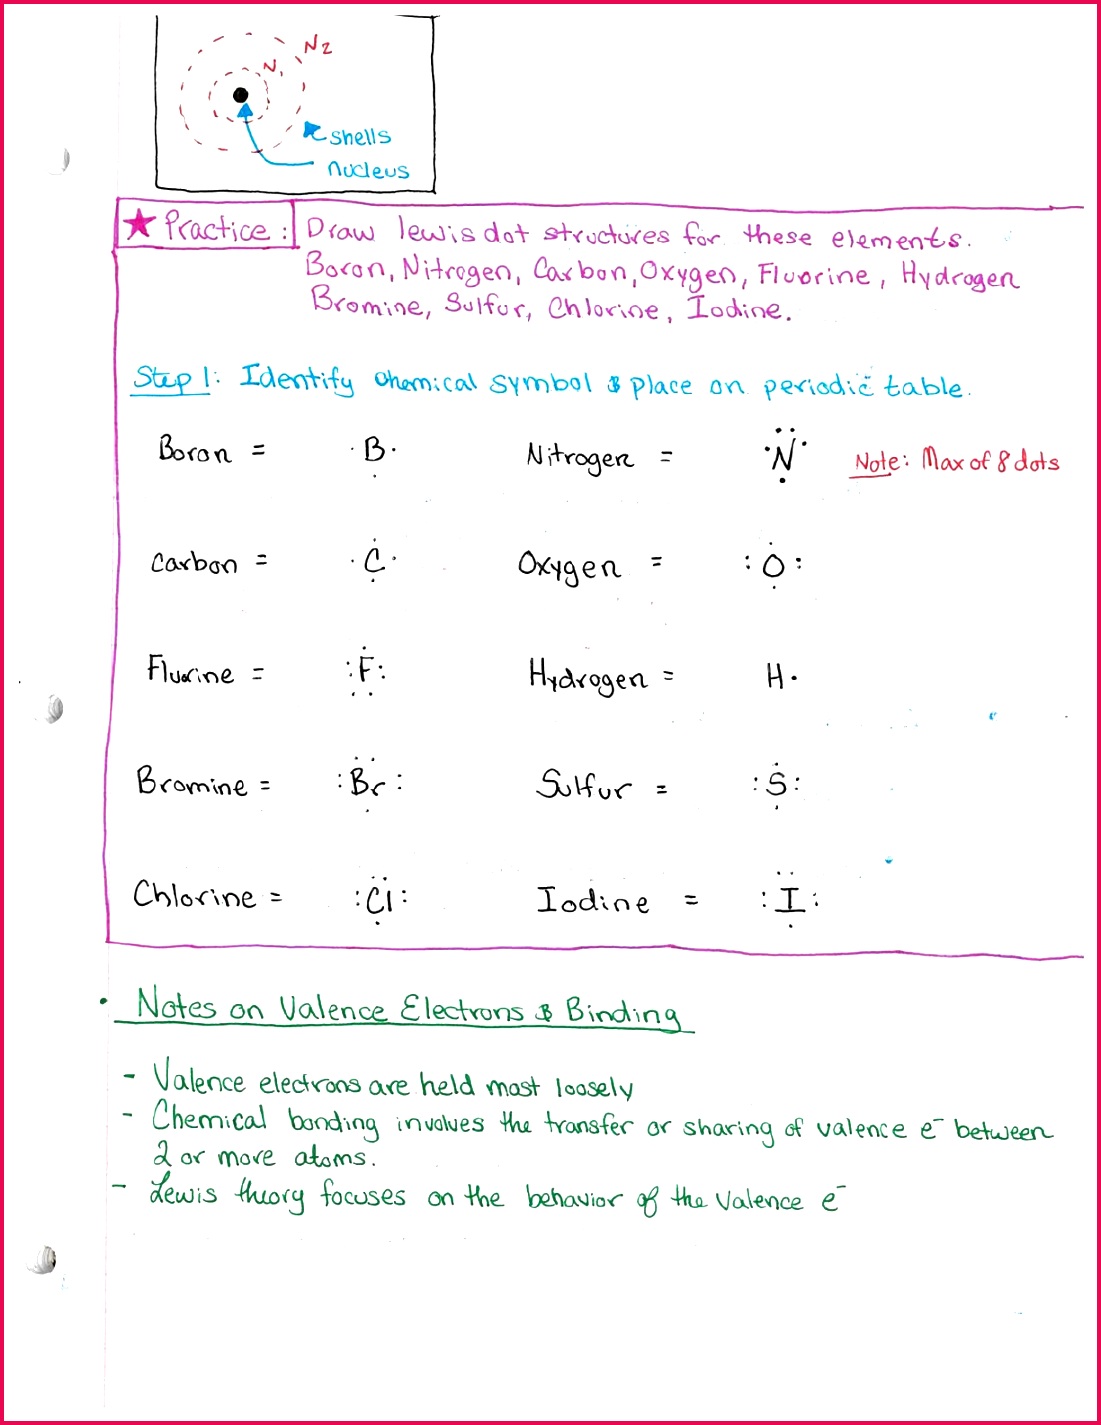 N2
N1
shells
nucleus
★ Practice: Draw lewis dot structures for these elements.
Boron, Nitrogen, Carbon, Oxygen, Fluorine, Hydrogen
Bromine, Sulfur, Chlorine, Iodine.
Step 1: Identify chemical symbol & place on periodic table.
Boron = B Nitrogen = N Note: Max of 8 dots
Carbon = C Oxygen = O
Flurine = F Hydrogen = H
Bromine = Br Sulfur = S
Chlorine = Cl Iodine = I
• Notes on Valence Electrons & Binding
- Valence electrons are held most loosely
- Chemical bonding involves the transfer or sharing of valence e⁻ between
2 or more atoms.
- Lewis theory focuses on the behavior of the valence e⁻